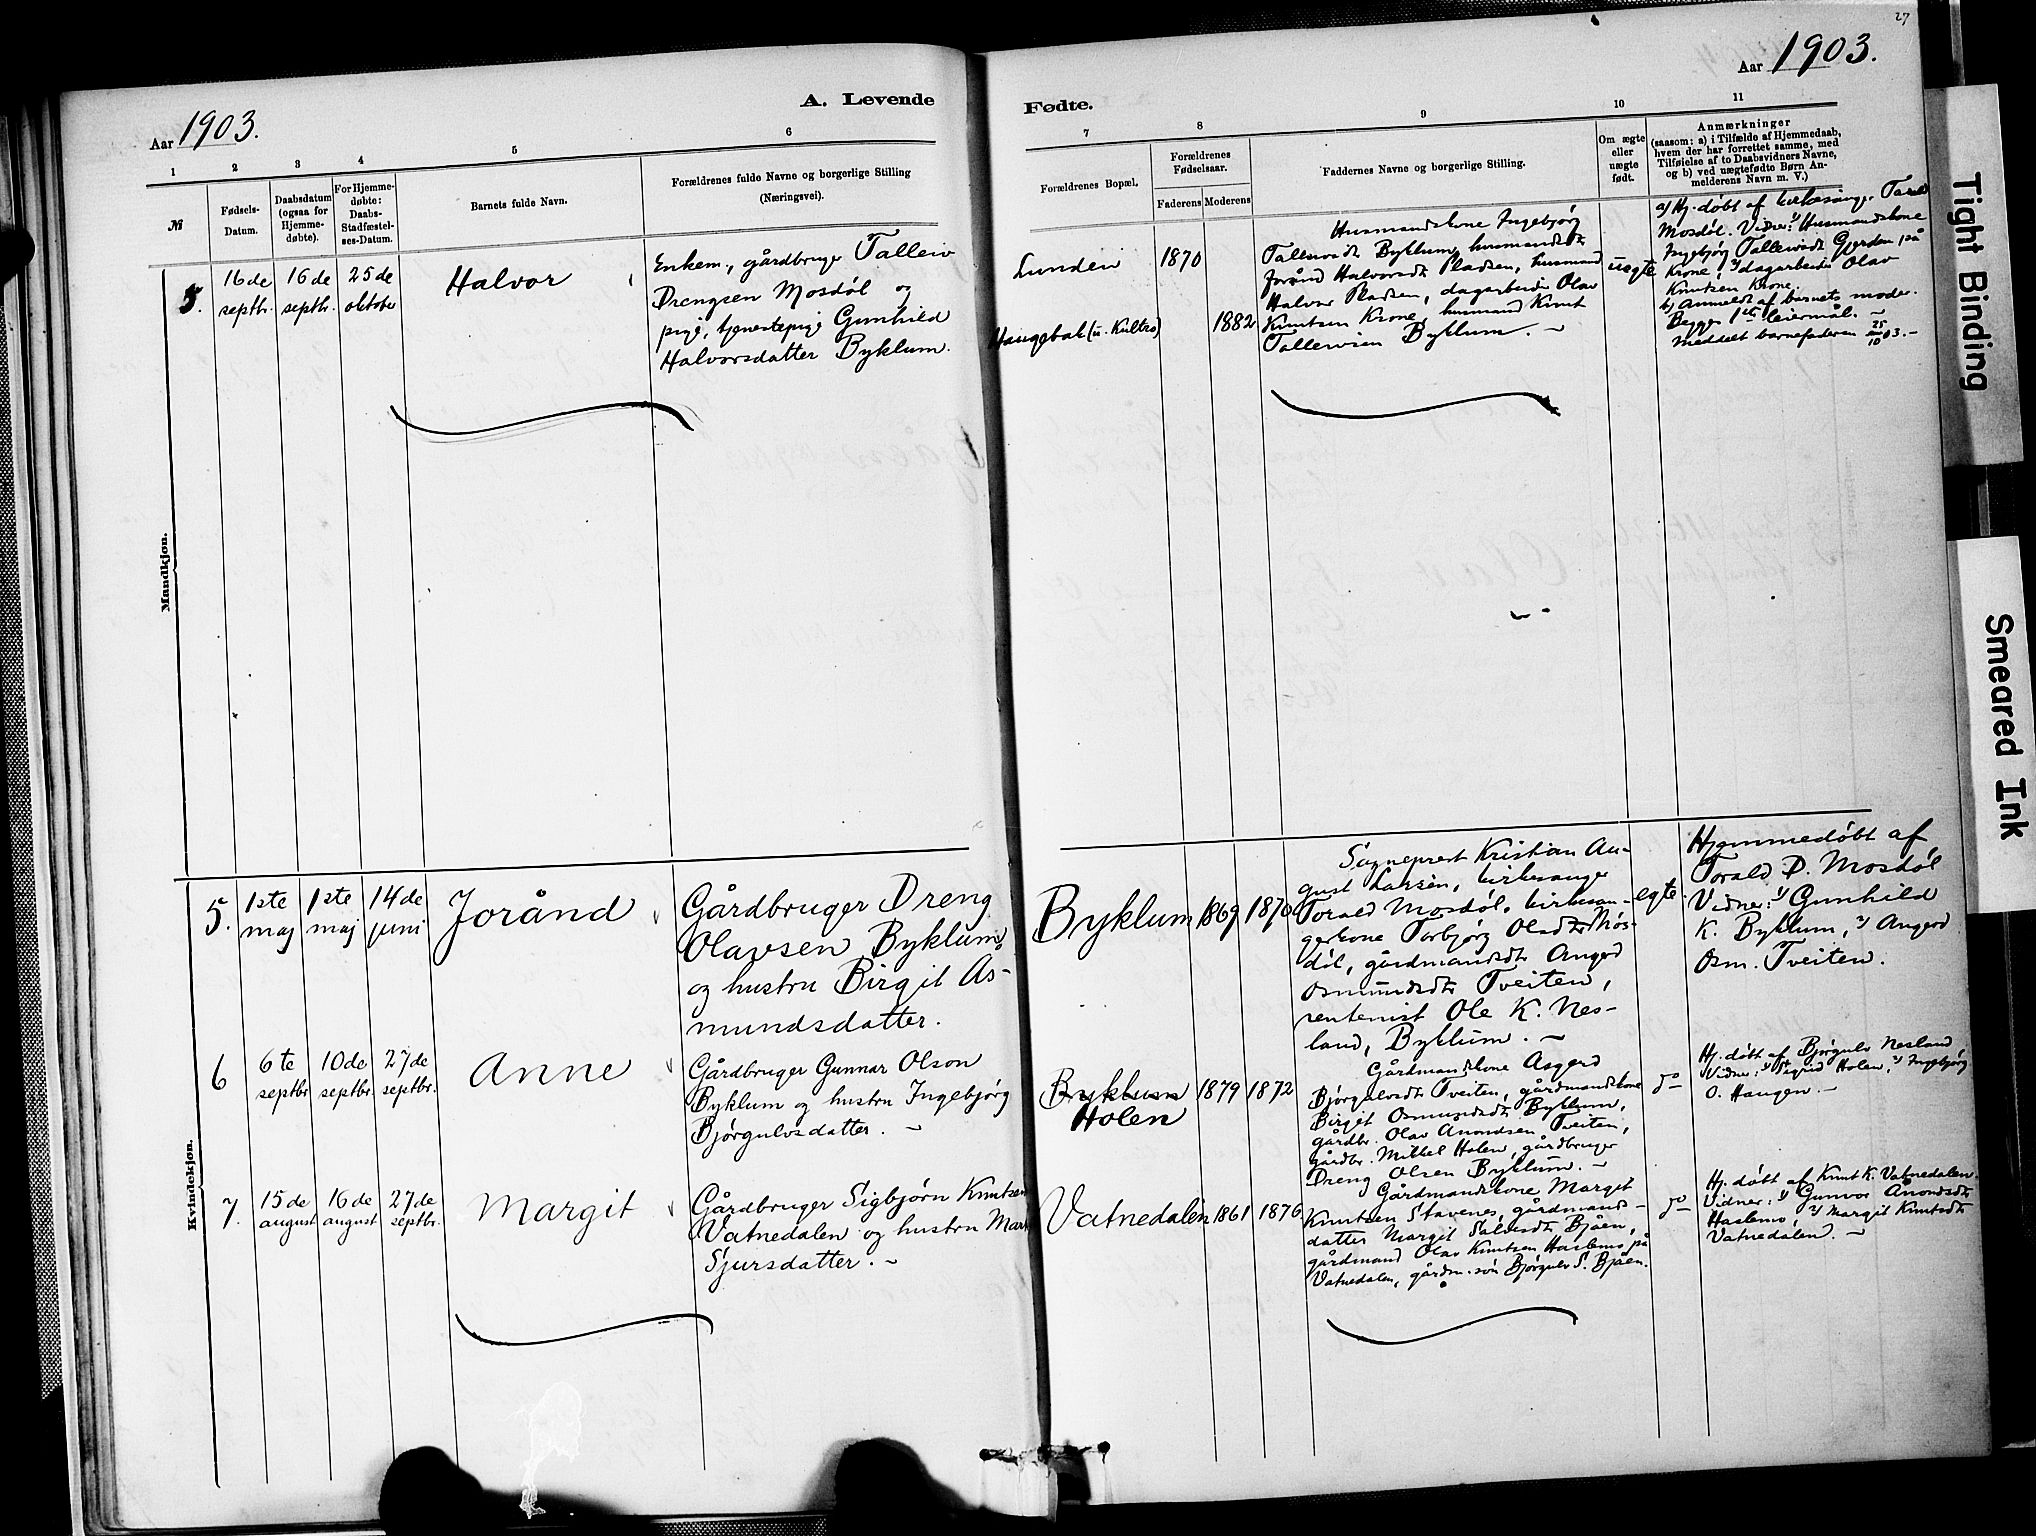 27
Aar 1903.
A. Levende
Fødte.
Aar 1903.
1 2 3 4 5 6 7 8 9 10 11
№
Fødsels-
Datum.
Daabsdatum
(ogsaa for
Hjemme-
døbte).
For Hjemme-
døbte:
Daabs-
Stadfæstel-
ses-Datum.
Barnets fulde Navn.
Forældrenes fulde Navne og borgerlige Stilling
(Næringsvei).
Forældrenes Bopæl.
Forældrenes
Fødselsaar.
Faderens Moderens
Faddernes Navne og borgerlige Stilling.
Om ægte
eller
uægte
født.
Anmærkninger
(saasom: a) i Tilfælde af Hjemmedaab,
hvem der har forrettet samme, med
Tilføielse af to Daabsvidners Navne,
og b) ved uægtefødte Børn An-
melderens Navn m. V.)
Mandkjøn.
5.
16de
septbr.
16de
septbr.
25de
oktober
Halvor
Enkem., gårdbruger Talleiv
Drengsen Mosdøl og
pige, tjenestepige Gunhild
Halvorsdatter Byklum.
Lunden
Haugebak (u. Kultro)
1870
1882
Husmandskone Ingebjørg
Talleivsdt. Byklum, husmandsdt.
Jorånd Halvorsdt. Pladsen, husmand
Halvor Pladsen, dagarbeider Olav
Knutsen Krone, husmand Knut
Talleivsen Byklum. –
uegte
a) Hj. døbt af kirkesanger Torald
Mosdøl. Vidner: 1) Husmandskone
Ingebjørg Talleivsdt. Gjerden på
Krone, 2) dagarbeider Olav
Knutsen Krone.
b) Anmeldt af barnets moder.
Begges 1ste leiermål. –
Meddelt barnefaderen 25/10 03. –
Kvindekjøn.
5.
1ste
maj
1ste
maj
14de
juni
Jorånd
Gårdbruger Dreng
Olavsen Byklum
og hustru Birgit As-
mundsdatter.
Byklum
1869
1870
Sogneprest Kristian Au-
gust Larsen, kirkesanger
Torald Mosdøl, kirkesan-
gerkone Torbjørg Olavsdtr Mos-
døl, gårdmandsdt. Anged
Osmundsdtr Tveiten,
rentenist Ole K. Nes-
land, Byklum. –
egte.
Hjemmedøbt af
Torald D. Mosdøl
Vidner: 1) Gunhild
K. Byklum, 2) Angerd
Osm. Tveiten.
6
6te
septbr
10de
septbr.
27de
septbr.
Anne
Gårdbruger Gunnar Olson
Byklum og hustru Ingebjørg
Bjørgulvsdatter. –
Byklum
Holen
1879
1872
Gårdmandskone Asgerd
Bjørgulvsdt. Tveiten, gårdmandskone
Birgit Osmundsdt. Byklum,
gårdbr. Olav Anondsen Tveiten,
gårdbr. Mikkel Holen, gårdbruger
Dreng Olsen Byklum. –
do
Hj. døbt af Bjørgulv Nesland
Vidner: 1) Sigrid Holen, 2) Ingebjørg
O. Haugen. –
7.
15de
august
16de
august
27de
septbr.
Margit
Gårdbruger Sigbjørn Knutsen
Vatnedalen og hustru Mari
Sjursdatter. –
Vatnedalen
1861
1876
Gårdmandskone Margit
Knutsen Stavenes, gårdmands-
datter Margit Salvesdt. Bjåen,
gårdmand Olav Knutsen Haslemo på
Vatnedalen, gårdm. søn Bjørgulv S. Bjåen.
do
Hj. døbt af Knut K. Vatnedalen.
Vidner: 1) Gunvor Anondsdt.
Haslemo, 2) Margit Knutsdt.
Vatnedalen. –
Tight Binding
Smeared Ink